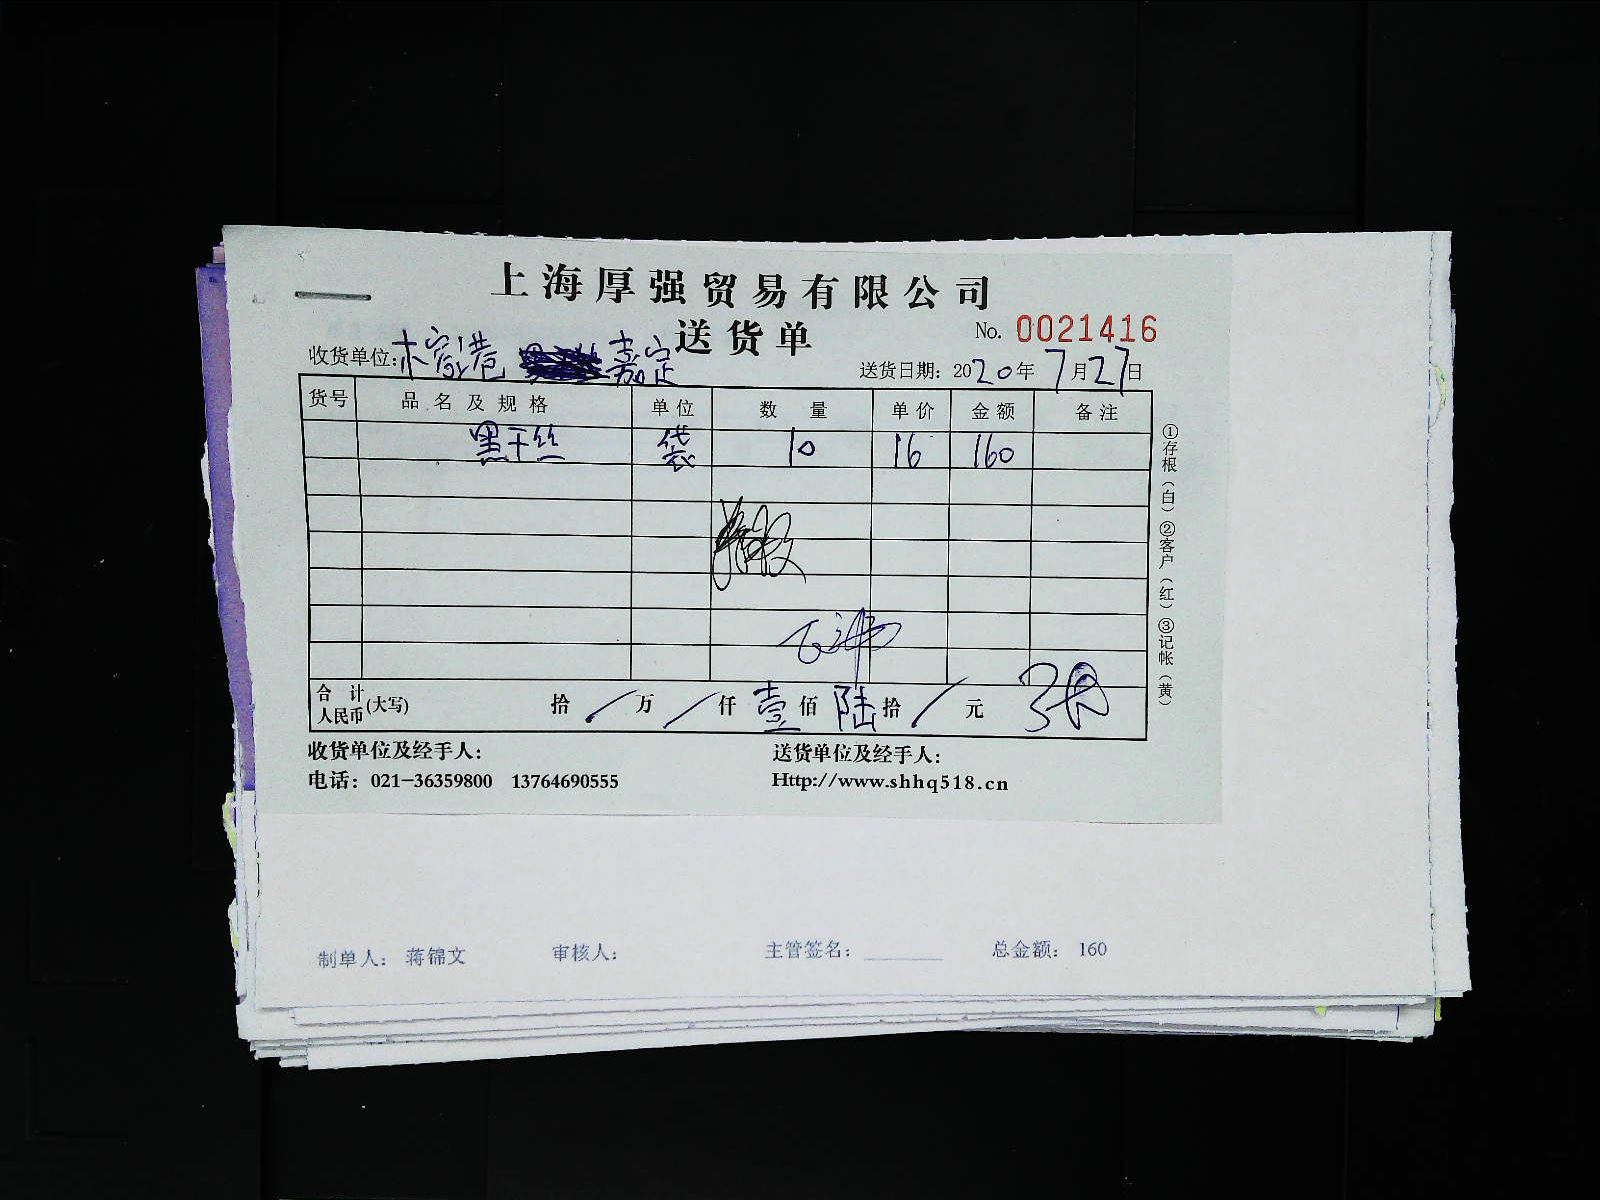 上海厚强贸易有限公司
送货单
No. 0021416
收货单位: 木窗港 嘉定
送货日期: 2020年7月27日
货号 品名及规格 单位 数量 单价 金额 备注
黑干丝 袋 10 16 160
合计人民币(大写) 拾/万/仟壹佰陆拾/元
收货单位及经手人:
送货单位及经手人:
电话: 021-36359800 13764690555
Http://www.shhq518.cn
①存根(白)②客户(红)③记帐(黄)
制单人: 蒋锦文 审核人: 主管签名: 总金额: 160